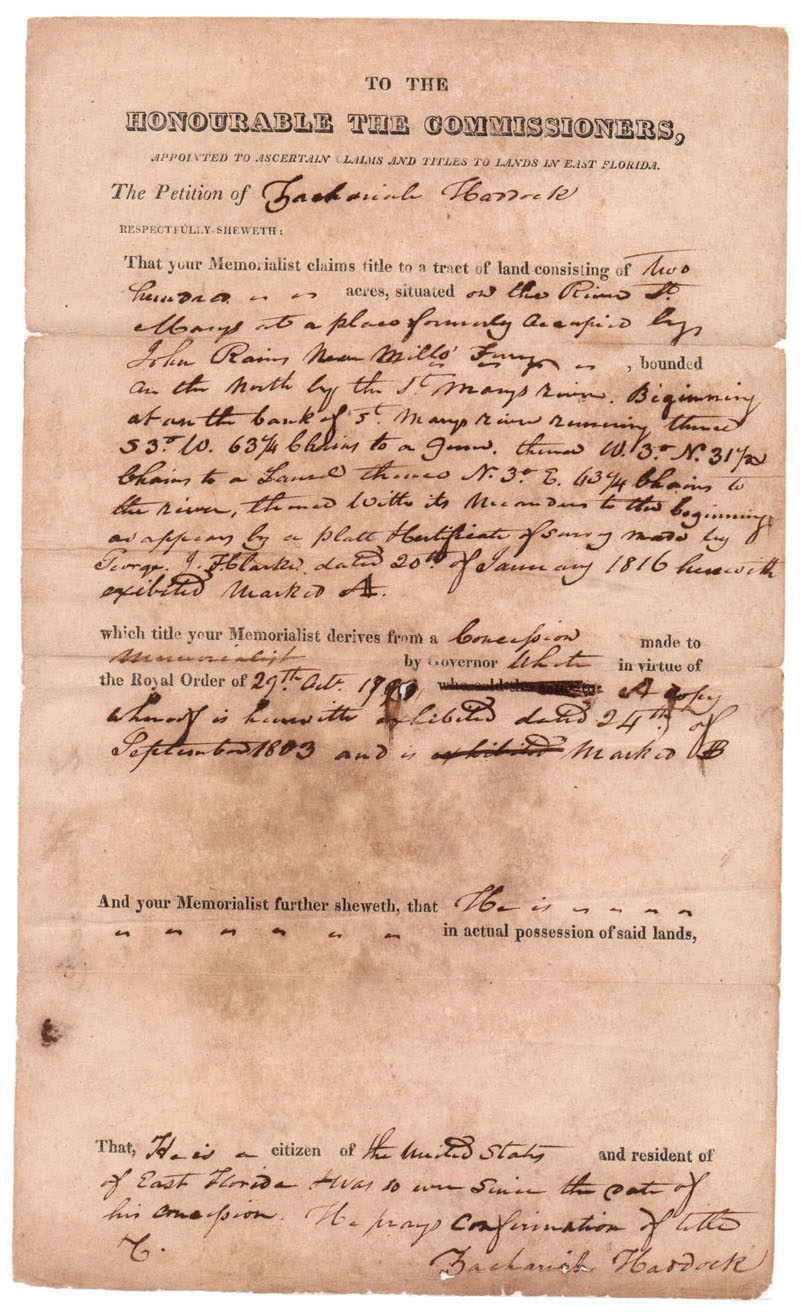 TO THE
HONOURABLE THE COMMISSIONERS,
APPOINTED TO ASCERTAIN CLAIMS AND TITLES TO LANDS IN EAST FLORIDA.
The Petition of Zachariah Haddock
RESPECTFULLY SHEWETH:
That your Memorialist claims title to a tract of land consisting of Two
hundred " " acres, situated on the River St.
Marys at a place formerly Occupied by
John Rains Near Mills' Ferry " , bounded
on the North by the St. Marys river. Beginning
at on the bank of St. Marys river running thence
S 3° W. 63¼ Chains to a Gum. thence W. 3° N. 31½
Chains to a Laurel thence N. 3° E. 63¼ Chains to
the river, thence With its Meanders to the beginning
as appears by a platt & certificate of survey made by
George J. F. Clarke, dated 20th of January 1816 herewith
exibited Marked A.
which title your Memorialist derives from a Concession made to
Memorialist by Governor White in virtue of
the Royal Order of 29th Octr. 1790, A copy
whereof is herewith exhibited dated 24th of
September 1803 and is exhibited Marked B
And your Memorialist further sheweth, that He is " " " "
" " " " " " in actual possession of said lands,
That, He is a citizen of the United States and resident of
of East Florida & was so ever since the date of
his concession. He prays confirmation of title
&.
Zachariah Haddock